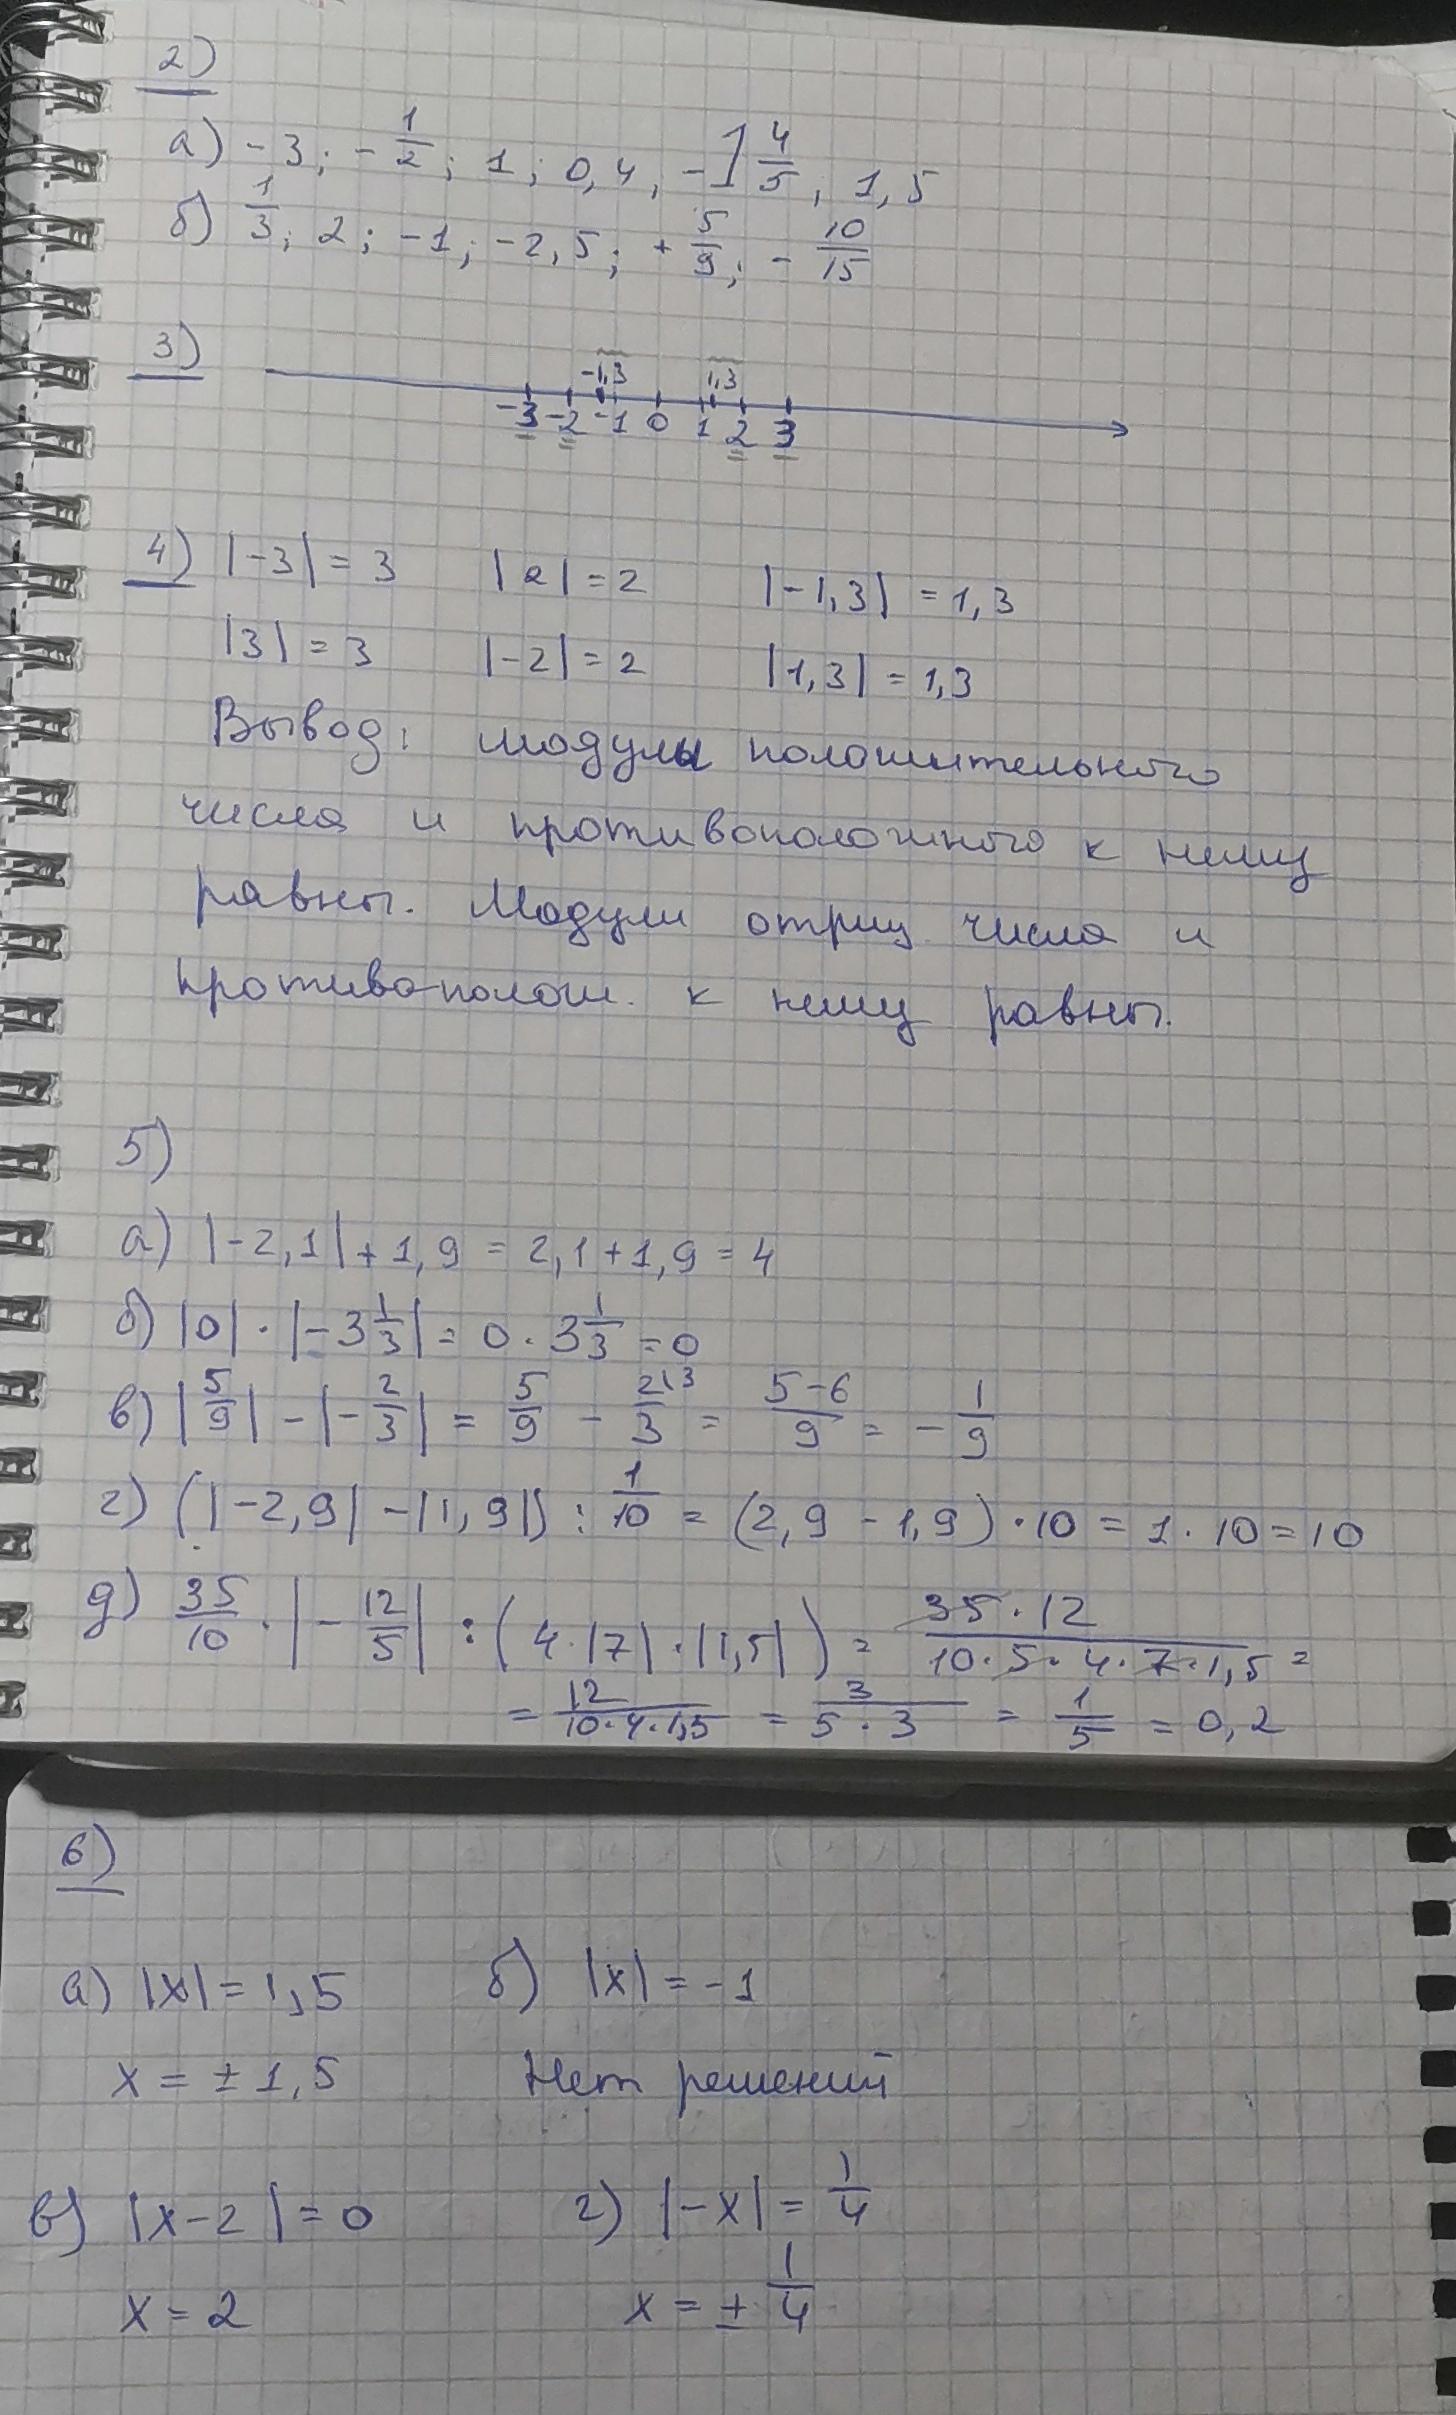 2)
а) -3; -1/2; 1; 0,4, -1 4/5; 1,5
б) 1/3; 2; -1; -2,5; +5/9; -10/15
3)
-1,3 1,3
-3 -2 -1 0 1 2 3
4) |-3| = 3 |2| = 2 |-1,3| = 1,3
|3| = 3 |-2| = 2 |1,3| = 1,3
Вывод: модулы положительного
числа и противоположного к нему
равны. Модули отриц. числа и
противополож. к нему равны.
5)
а) |-2,1| + 1,9 = 2,1 + 1,9 = 4
б) |0| · |-3 1/3| = 0 · 3 1/3 = 0
в) |5/9| - |-2/3| = 5/9 - 2\3/3 = (5-6)/9 = -1/9
г) (|-2,9| - |1,9|) : 1/10 = (2,9 - 1,9) · 10 = 1 · 10 = 10
д) 35/10 · |-12/5| : (4 · |7| · |1,5|) = (35 · 12)/(10 · 5 · 4 · 7 · 1,5) =
= 12/(10 · 4 · 1,5) = 3/(5 · 3) = 1/5 = 0,2
6)
а) |x| = 1,5 б) |x| = -1
x = ± 1,5 Нет решений
в) |x-2| = 0 г) |-x| = 1/4
x = 2 x = ± 1/4